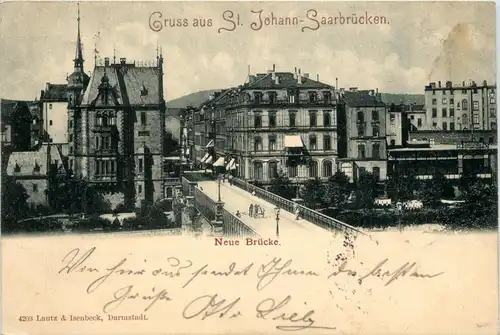 Gruss aus St. Johann-Saarbrücken.
Neue Brücke.
Von hier aus sendet Ihnen die besten
Grüße Otto
4203 Lautz & Isenbeck, Darmstadt.